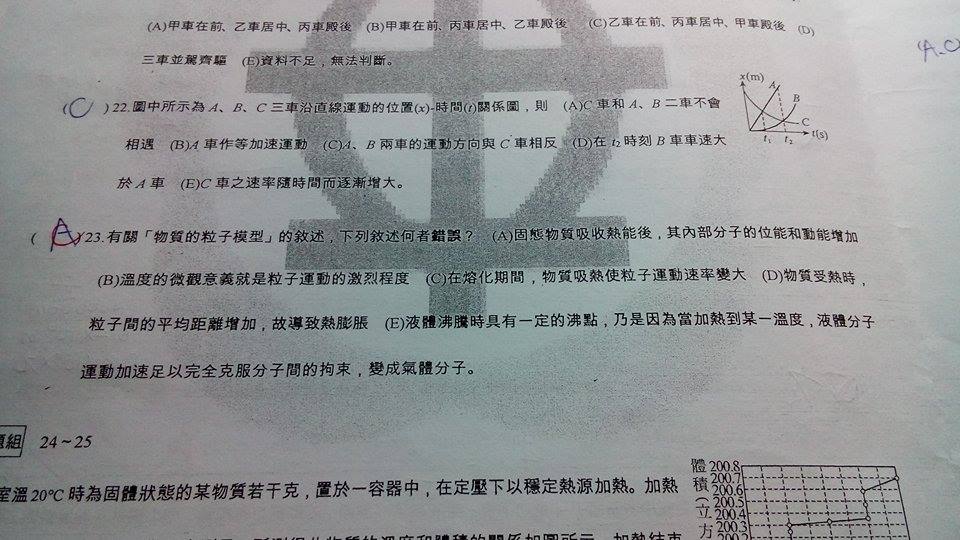 (A)甲車在前、乙車居中、丙車殿後 (B)甲車在前、丙車居中、乙車殿後 (C)乙車在前、丙車居中、甲車殿後 (D)
三車並駕齊驅 (E)資料不足，無法判斷。
(A.C)
( C )22.圖中所示為 A、B、C 三車沿直線運動的位置(x)-時間(t)關係圖，則 (A)C 車和 A、B 二車不會
相遇 (B)A 車作等加速運動 (C)A、B 兩車的運動方向與 C 車相反 (D)在 t2 時刻 B 車車速大
於 A 車 (E)C 車之速率隨時間而逐漸增大。
x(m)
A
B
C
t1 t2 t(s)
( A )23.有關「物質的粒子模型」的敘述，下列敘述何者錯誤？ (A)固態物質吸收熱能後，其內部分子的位能和動能增加
(B)溫度的微觀意義就是粒子運動的激烈程度 (C)在熔化期間，物質吸熱使粒子運動速率變大 (D)物質受熱時，
粒子間的平均距離增加，故導致熱膨脹 (E)液體沸騰時具有一定的沸點，乃是因為當加熱到某一溫度，液體分子
運動加速足以完全克服分子間的拘束，變成氣體分子。
題組 24～25
室溫 20°C 時為固體狀態的某物質若干克，置於一容器中，在定壓下以穩定熱源加熱。加熱
體積(立方
200.8
200.7
200.6
200.5
200.4
200.3
200.2